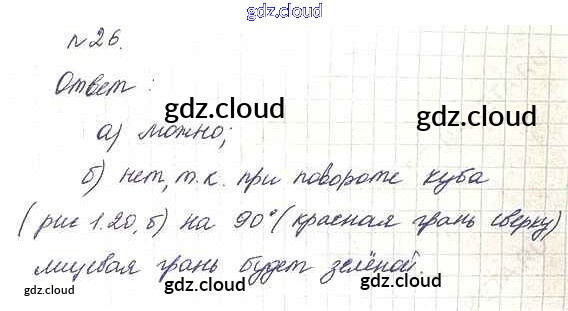 gdz.cloud
№26.
Ответ:
gdz.cloud gdz.cloud
а) можно;
б) нет, т.к. при повороте куба
(рис 1.20, б) на 90° (красная грань сверху)
лицевая грань будет зелёной.
gdz.cloud gdz.cloud